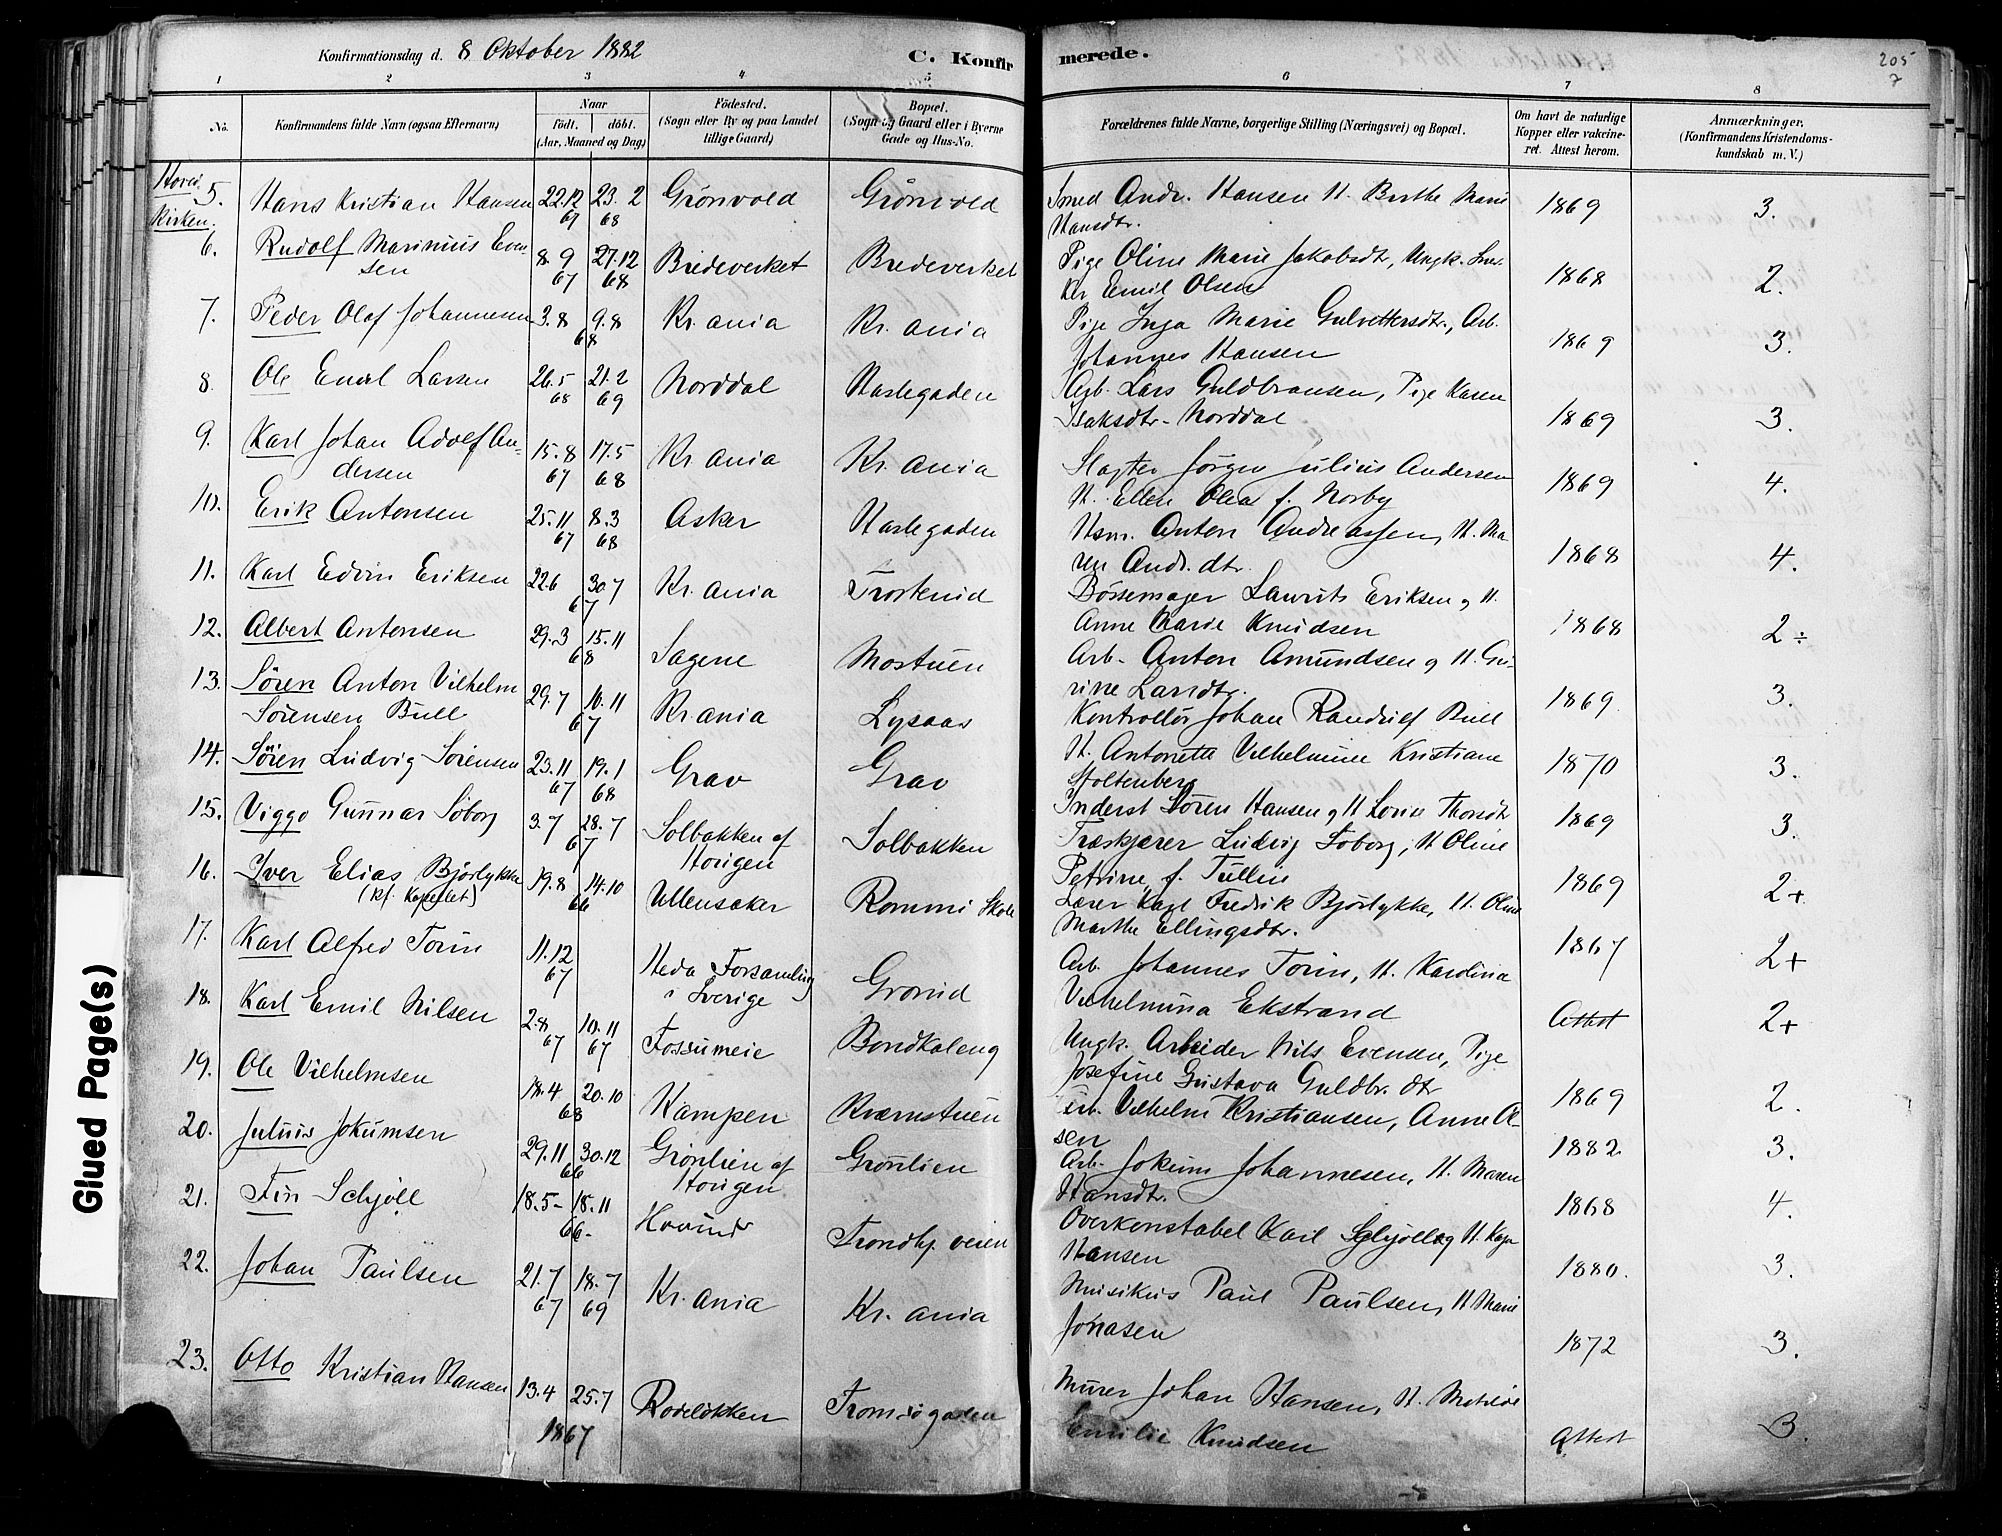 Konfirmationsdag d. 8 Oktober 1882
C. Konfirmerede.
205
7
1 2 3 4 5 6 7 8
No.
Konfirmandens fulde Navn (ogsaa Efternavn)
Naar
födt. döbt.
(Aar, Maaned og Dag)
Födested.
(Sogn eller By og paa Landet
tillige Gaard)
Bopæl.
(Sogn og Gaard eller i Byerne
Gade og Hus-No.
Forældrenes fulde Navne, borgerlige Stilling (Næringsvei) og Bopæl.
Om havt de naturlige
Kopper eller vakcine-
ret. Attest herom.
Anmærkninger.
(Konfirmandens Kristendoms-
kundskab m. V.)
Hoved
Kirken.
5. Hans Kristian Hansen 22.12 67 23.2 68 Grönvold Grönvold Smed Andr. Hansen H. Berthe Marie
Hansdtr. 1869 3.
6. Rudolf Marinius Even-
sen 8.9 67 27.12 68 Bredeverket Bredeverket Pige Oline Marie Jakobsdtr, Ungk. Snek-
ker Emil Olsen 1868 2.
7. Peder Olaf Johannesen 3.8 9.8 68 Kr.ania Kr.ania Pige Inga Marie Gulvettersdtr., Arb.
Johannes Hansen 1869 3.
8. Ole Emil Larsen 26.5 68 21.2 69 Norddal Haslegaden Arb. Lars Guldbransen, Pige Karen
Isaksdtr. Norddal 1869 3.
9. Karl Johan Adolf An-
dersen 15.8 67 17.5 68 Kr.ania Kr.ania Slagter Jørgen Julius Andersen
H. Ellen Olea f. Norby 1869 4.
10. Erik Antonsen 25.11 67 8.3 68 Asker Haslegaden Hsm. Anton Andreassen, H. Ma-
ren Andr.dtr. 1868 4.
11. Karl Edvin Eriksen 22.6 30.7 67 Kr.ania Trosterud Bössemager Laurits Eriksen og H.
Anne Marie Knudsen 1868 2÷
12. Albert Antonsen 29.3 15.11 68 Sagene Mostuen Arb. Anton Amundsen og H. Gu-
rine Larsdtr. 1869 3.
13. Sören Anton Vilhelm
Sörensen Bull 29.7 10.11 67 Kr.ania Lysaas Kontrollör Johan Randulf Bull
H. Antonette Vilhelmine Kristiane
Stoltenberg 1870 3.
14. Sören Ludvig Sörensen 23.11 67 19.1 68 Grav Grav Inderst Sören Hansen og H Lovise Thorsdtr 1869 3.
15. Viggo Gunnar Söborg 3.7 28.7 67 Solbakken af
Haugen Solbakken Træskjærer Ludvig Söborg, H Oline
Petrine, f. Tullin 1869 2+
16. Iver Elias Björlykke
(Kf. Kapellet) 19.8 14.10 66 Ullensaker Rommi Skole Lærer Karl Fredrik Björlykke, H. Oline
Marthe Ellingsdtr. 1867 2+
17. Karl Alfred Torin 11.12 67 Heda Forsamling
i Sverige Grorud Arb. Johannes Torin, H. Karolina
Vilhelmina Ekstrand Attest 2+
18. Karl Emil Nilsen 2.8 67 10.11 67 Fossumeie Bondkaleng Ungk. Arbeider Nils Evensen, Pige
Josefine Gustava Guldbr.dtr 1869 2.
19. Ole Vilhelmsen 18.4 20.10 68 Kampen Kværnstuen Arb. Vilhelm Kristiansen, Anne Ol-
sen 1882 3.
20. Julius Jokumsen 29.11 30.12 66 Grönlien af
Haugen Grönlien Arb. Jokum Johannesen, H. Maren
Hansdtr. 1868 4.
21. Fin Schjöll 18.5 18.11 66 Hovind Trondhj. veien Overkonstabel Karl Schjöll og H. Kaja
Hansen 1880. 3.
22. Johan Paulsen 21.7 67 18.7 69 Kr.ania Kr.ania Musikus Paul Paulsen, H Marie
Jonasen 1872 3.
23. Otto Kristian Hansen 13.4 25.7 1867 Rodelökken Tromsögaden Murer Johan Hansen, H. Matilde
Emilie Knudsen Attest 3.
Glued Page(s)